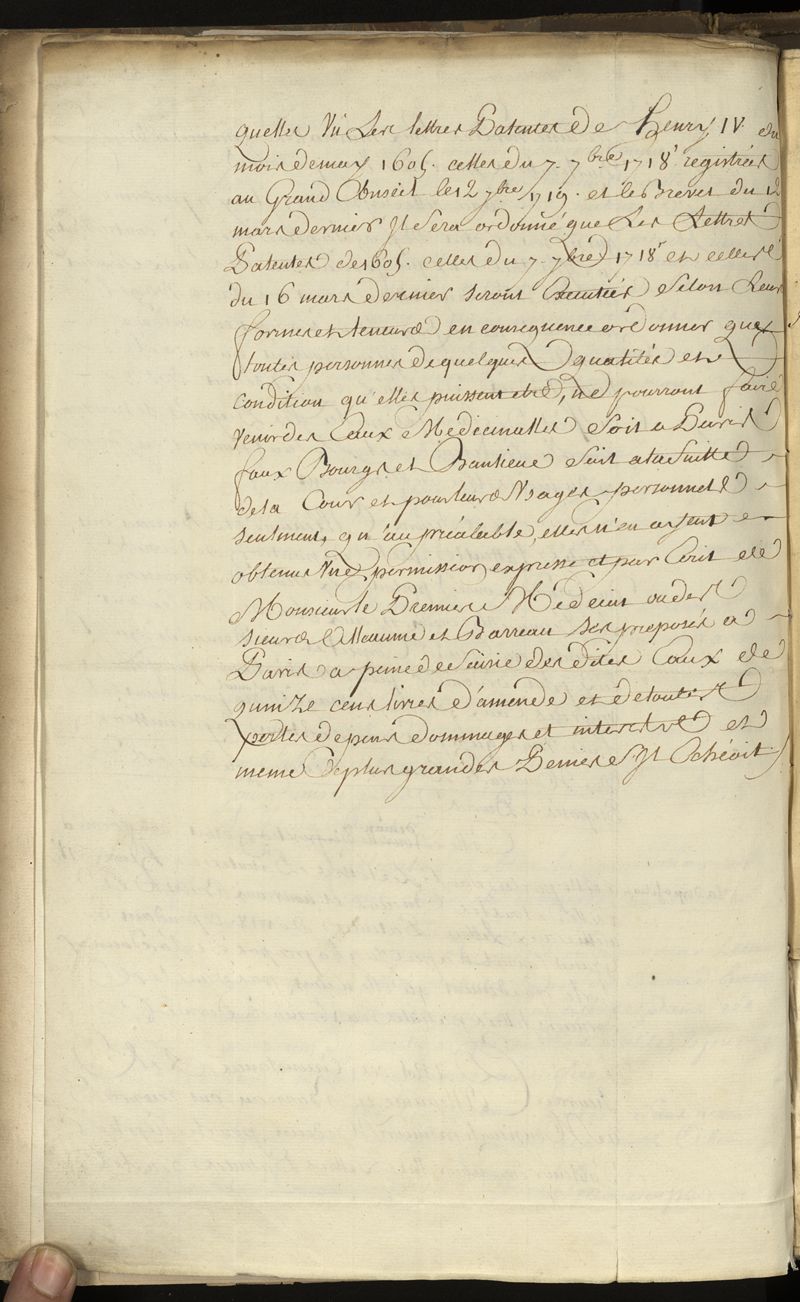 quelles Vû Les lettres Patentes de Henry IV. du
mois de may 1605. celles du 7. 7bre 1718 registrées
au Grand Conseil le 12 7bre 1719. et le Brevet du 12
mars dernier Il Sera ordonné que Les Lettres
Patentes de 1605. celles du 7. 7bre 1718 et celles
du 16 mars dernier seront Executées Selon Leurs
formes et teneurs en consequence ordonner que
toutes personnes de quelques qualités et
condition qu'elles puissent etre, ne pourront faire
Venir des Eaux Medecinalles Soit a Paris
faux Bourgs et Banlieue Soit a la Suitte
de la Cour et pour leurs Usages personnels
seulment, qu'au préalable elles n'en ayent
obtenus Une permission expresse et par Ecrit de
Monsieur le Premier Medecin ou des
sieurs Meaume et Barreau Ses preposés a
Paris a peine de Saisie des dites Eaux de
quinze cens livres d'amende et de toutes
pertes depens dommages et interests et
meme de plus grandes Peines S'Il Echéoit.